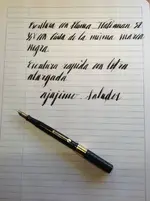 Escritura con Pluma Waterman 52
con tinta de la misma marca
negra.
Escritura rapida con letra
alargada
Saludos